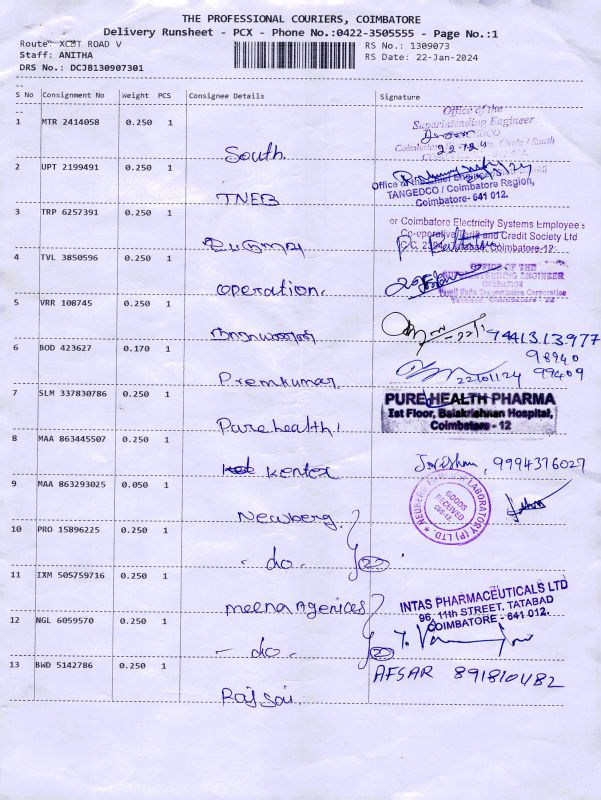 THE PROFESSIONAL COURIERS, COIMBATORE
Delivery Runsheet - PCX - Phone No.:0422-3505555 - Page No.:1
Route: XCUT ROAD V
RS No.: 1309073
Staff: ANITHA
RS Date: 22-Jan-2024
DRS No.: DCJB130907301
S No Consignment No Weight PCS Consignee Details Signature
1 MTR 2414058 0.250 1
South
Office of the
Superintending Engineer
22
2 UPT 2199491 0.250 1
TNEB
TANGEDCO / Coimbatore Region,
Coimbatore- 641 012.
3 TRP 6257391 0.250 1
Coimbatore Electricity Systems Employee's
Co-operative Thrift and Credit Society Ltd
Coimbatore-12
4 TVL 3850596 0.250 1
operation.
OFFICE OF THE
OPERATION
5 VRR 108745 0.250 1
94413.13977
6 BOD 423627 0.170 1
Premkumar
22/01/24
98940
99409
7 SLM 337830786 0.250 1
Purehealth
PURE HEALTH PHARMA
Ist Floor, Balakrishnan Hospital,
Coimbatore - 12
8 MAA 863445507 0.250 1
Kentex
9994376027
9 MAA 863293025 0.050 1
Newberg
LABORATORY (P) LTD
GOODS
RECEIVED
10 PRO 15896225 0.250 1
- do -
11 IXM 505759716 0.250 1
meena Agenices
INTAS PHARMACEUTICALS LTD
96, 11th STREET, TATABAD
COIMBATORE - 641 012.
12 NGL 6059570 0.250 1
- do -
13 BWD 5142786 0.250 1
Raj Sai
AFSAR 8918101182